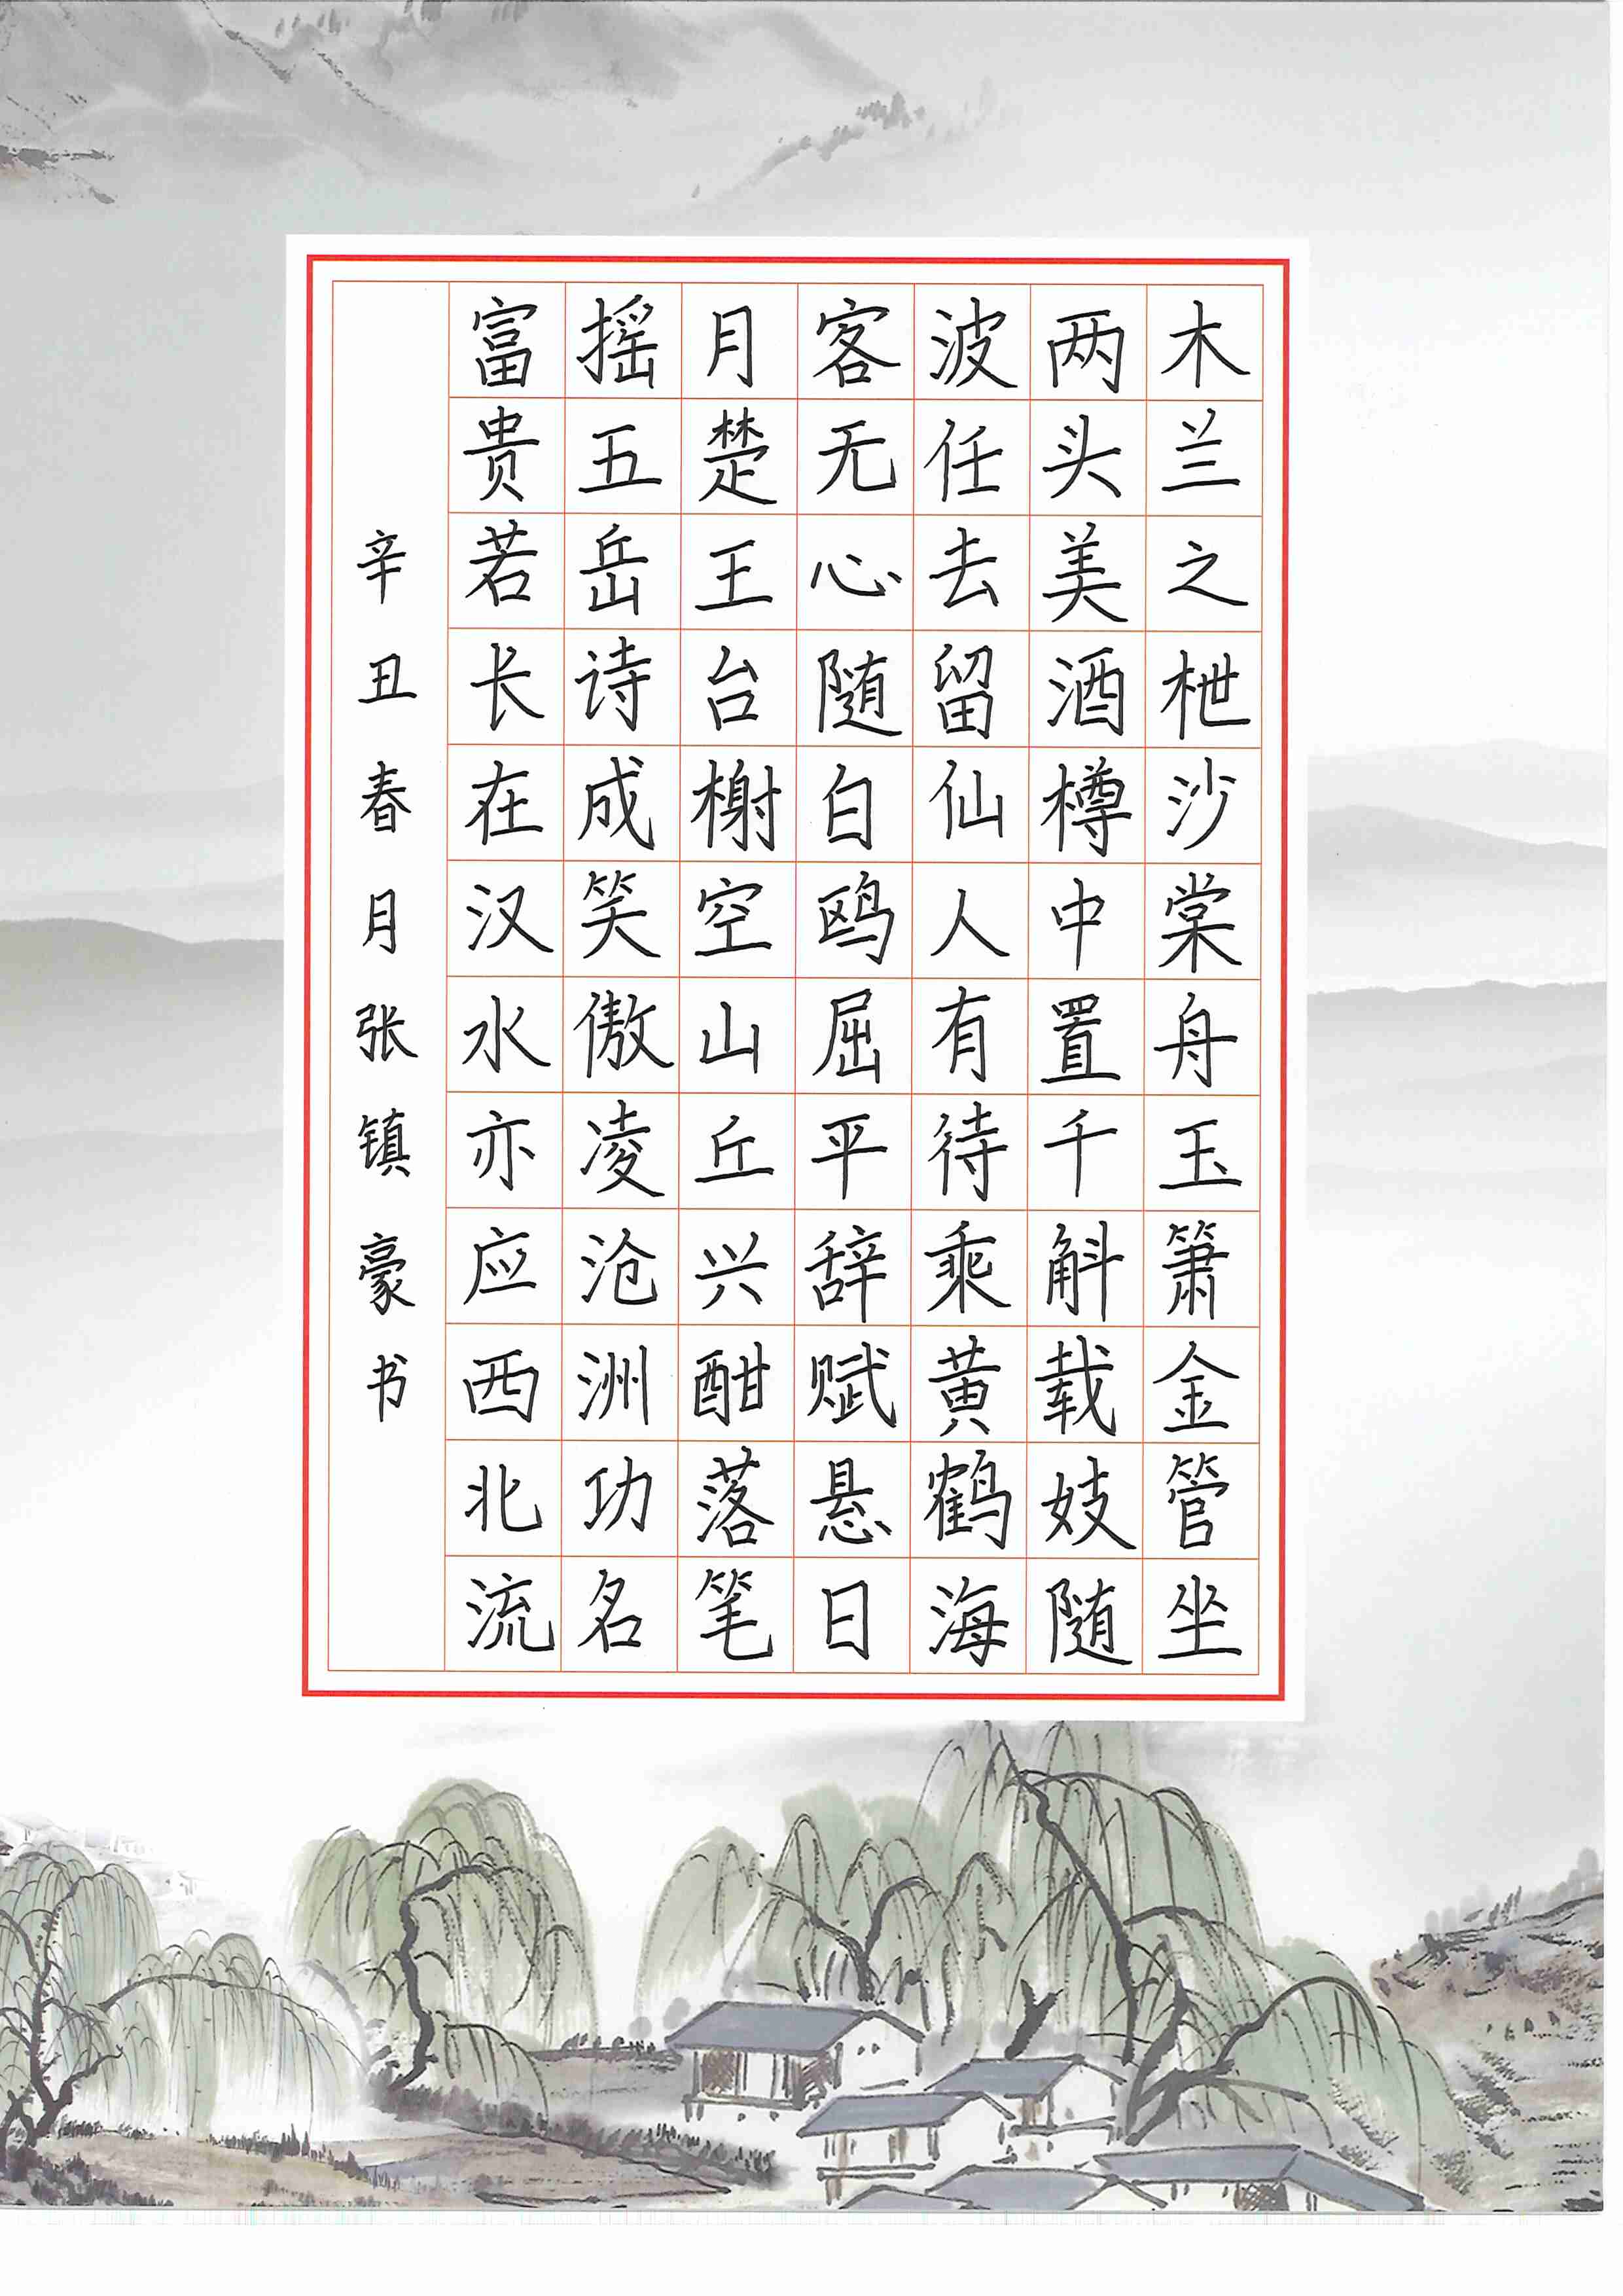 木兰之枻沙棠舟玉箫金管坐
两头美酒樽中置千斛载妓随
波任去留仙人有待乘黄鹤海
客无心随白鸥屈平辞赋悬日
月楚王台榭空山丘兴酣落笔
摇五岳诗成笑傲凌沧洲功名
富贵若长在汉水亦应西北流
辛丑春月张镇豪书